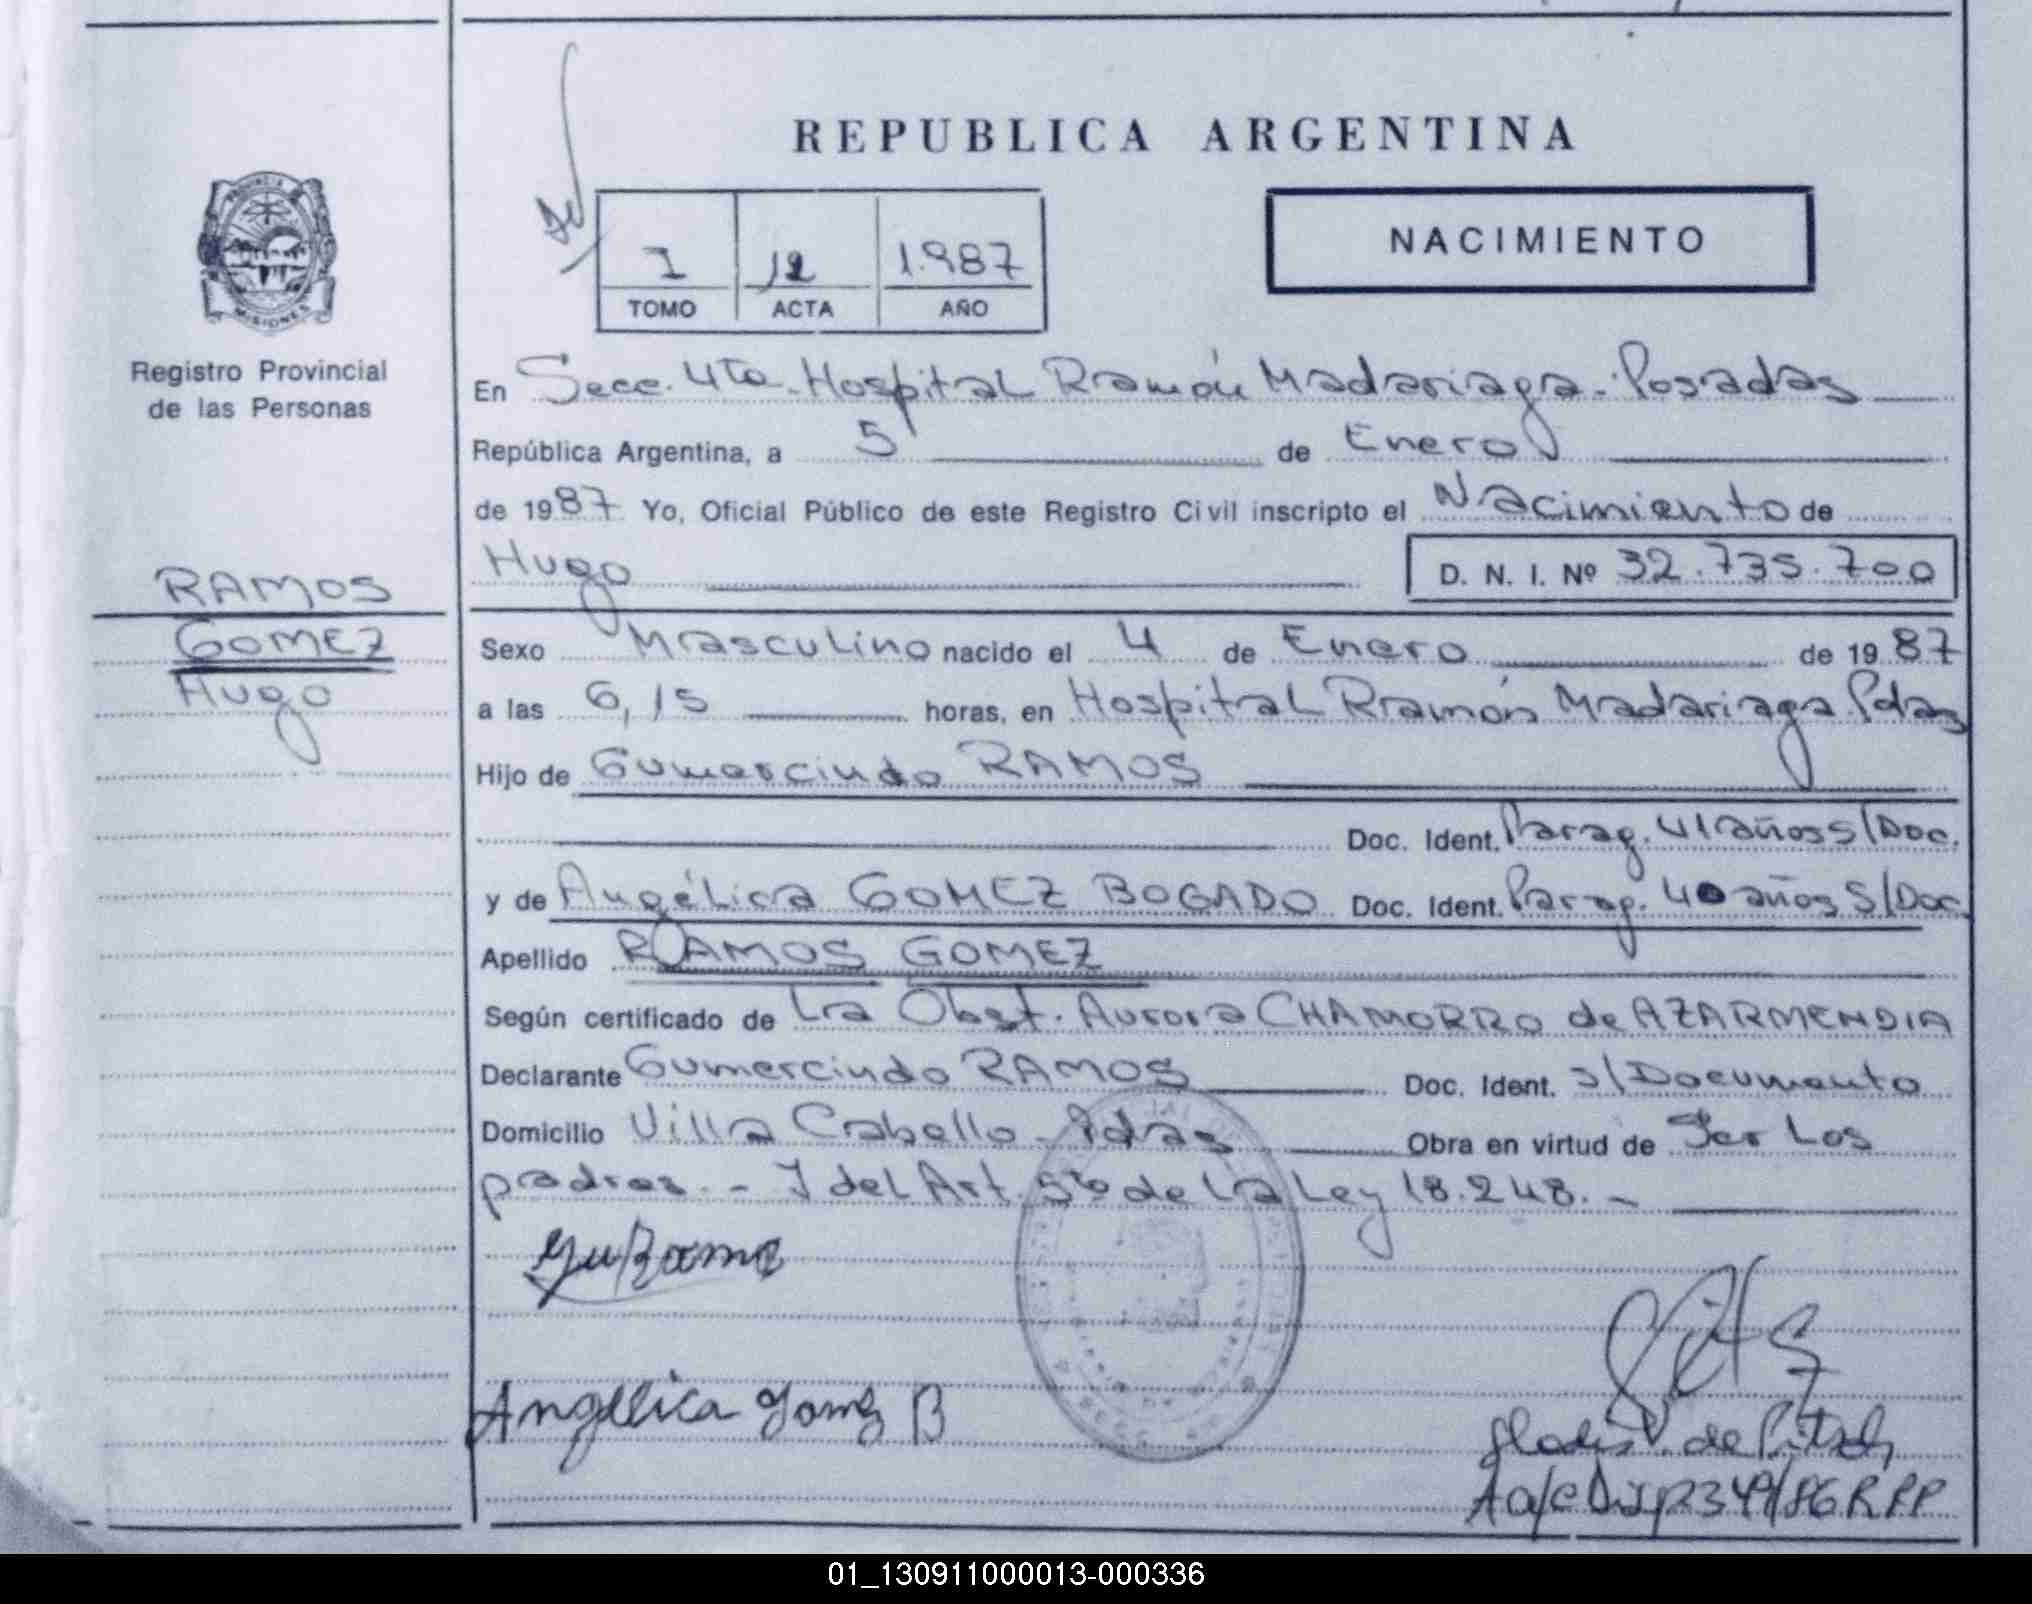 REPUBLICA ARGENTINA
PROVINCIA DE
MISIONES
Registro Provincial
de las Personas
I 12 1.987
TOMO ACTA AÑO
NACIMIENTO
En Secc. 4ta. Hospital Ramón Madariaga. Posadas
República Argentina, a 5 de Enero
de 1987 Yo, Oficial Público de este Registro Civil inscripto el Nacimiento de
Hugo D. N. I. Nº 32.735.700
RAMOS
GOMEZ
Hugo
Sexo Masculino nacido el 4 de Enero de 1987
a las 6,15 horas, en Hospital Ramón Madariaga Pdas
Hijo de Gumercindo RAMOS
Doc. Ident. Parag. 41 años S/Doc.
y de Angélica GOMEZ BOGADO Doc. Ident. Parag. 40 años S/Doc.
Apellido RAMOS GOMEZ
Según certificado de La Obst. Aurora CHAMORRO de AZARMENDIA
Declarante Gumercindo RAMOS Doc. Ident. S/Documento
Domicilio Villa Cabello - Pdas Obra en virtud de Ser Los
padres. - Y del Art. 5to de La Ley 18.248. -
Angelica Gomez B
01_130911000013-000336